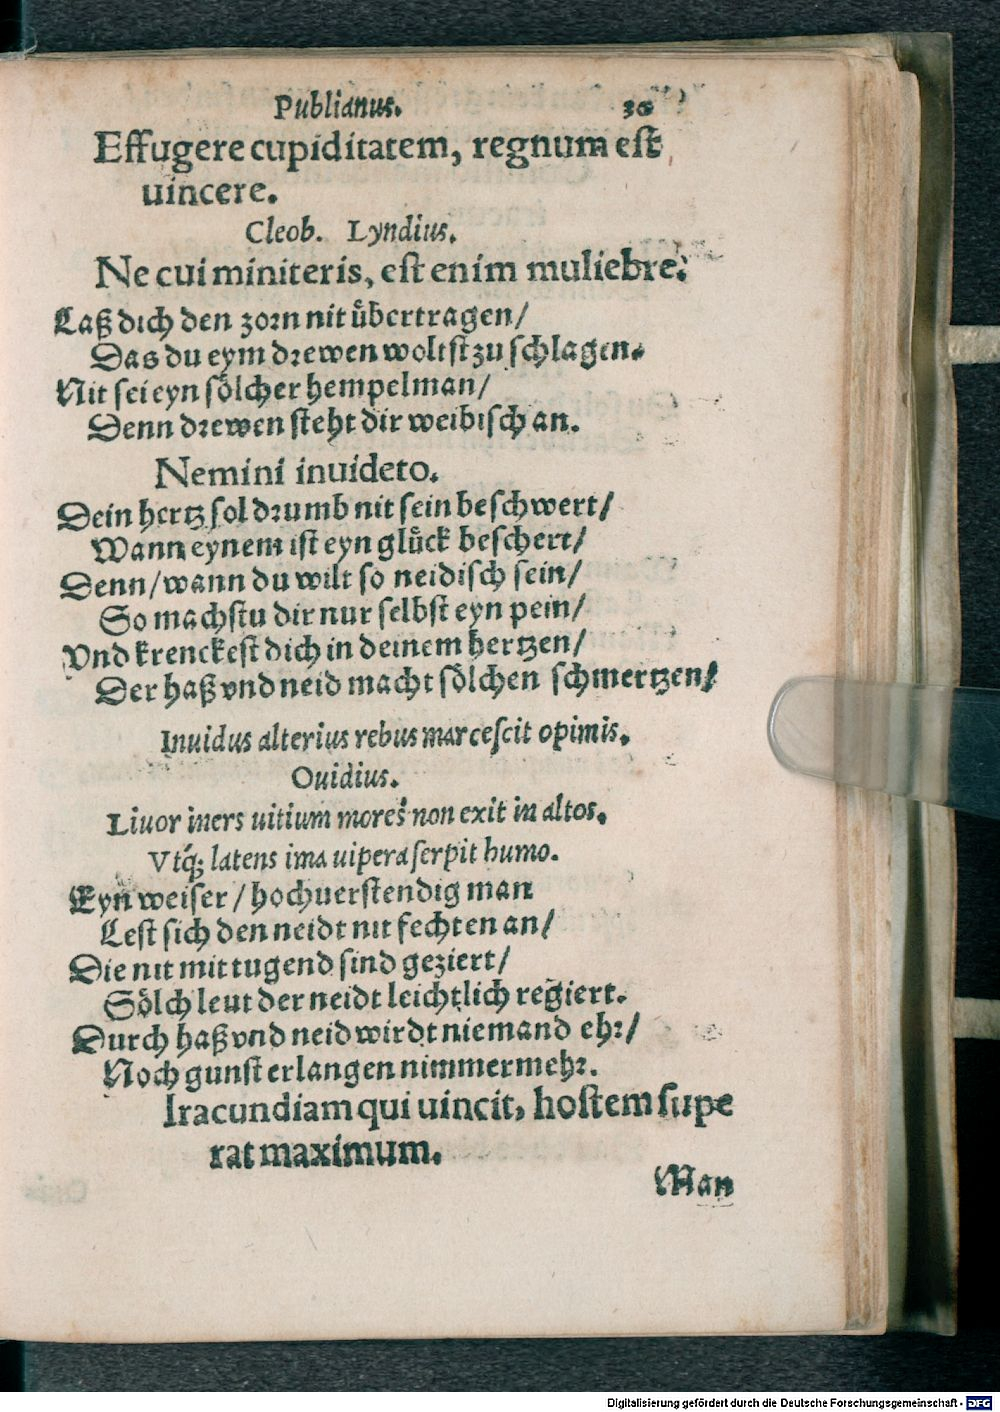 Publianus. 30
Effugere cupiditatem, regnum est
uincere.
Cleob. Lyndius.
Ne cui miniteris, est enim muliebre.
Laß dich den zorn nit uͤbertragen/
Das du eym drewen woltst zu schlagen.
Nit sei eyn soͤlcher hempelman/
Denn drewen steht dir weibisch an.
Nemini inuideto.
Dein hertz sol drumb nit sein beschwert/
Wann eynem ist eyn gluͤck beschert/
Denn/wann du wilt so neidisch sein/
So machstu dir nur selbst eyn pein/
Vnd krenckest dich in deinem hertzen/
Der haß vnd neid macht soͤlchen schmertzen/
Inuidus alterius rebus marcescit opimis.
Ouidius.
Liuor iners uitium mores non exit in altos.
Vtq́; latens ima uipera serpit humo.
Eyn weiser/hochuerstendig man
Lest sich den neidt nit fechten an/
Die nit mit tugend sind geziert/
Soͤlch leut der neidt leichtlich regiert.
Durch haß vnd neid wirdt niemand ehr/
Noch gunst erlangen nimmermehr.
Iracundiam qui uincit, hostem supe
rat maximum.
Man
Digitalisierung gefördert durch die Deutsche Forschungsgemeinschaft - DFG